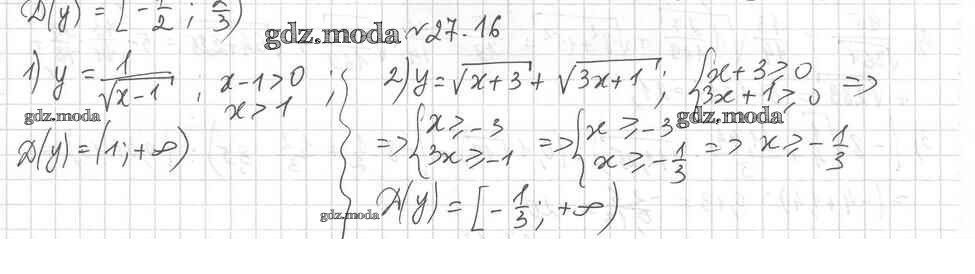 D(y) = [-1/2; 2/3)
gdz.moda №27.16
1) y = 1/√(x-1) ; x-1>0 ;
x>1
gdz.moda
D(y) = (1; +∞)
2) y = √(x+3) + √(3x+1) ; { x+3 ⩾ 0
3x+1 ⩾ 0 =>
gdz.moda
=> { x ⩾ -3
3x ⩾ -1 => { x ⩾ -3
x ⩾ -1/3 => x ⩾ -1/3
gdz.moda D(y) = [-1/3; +∞)